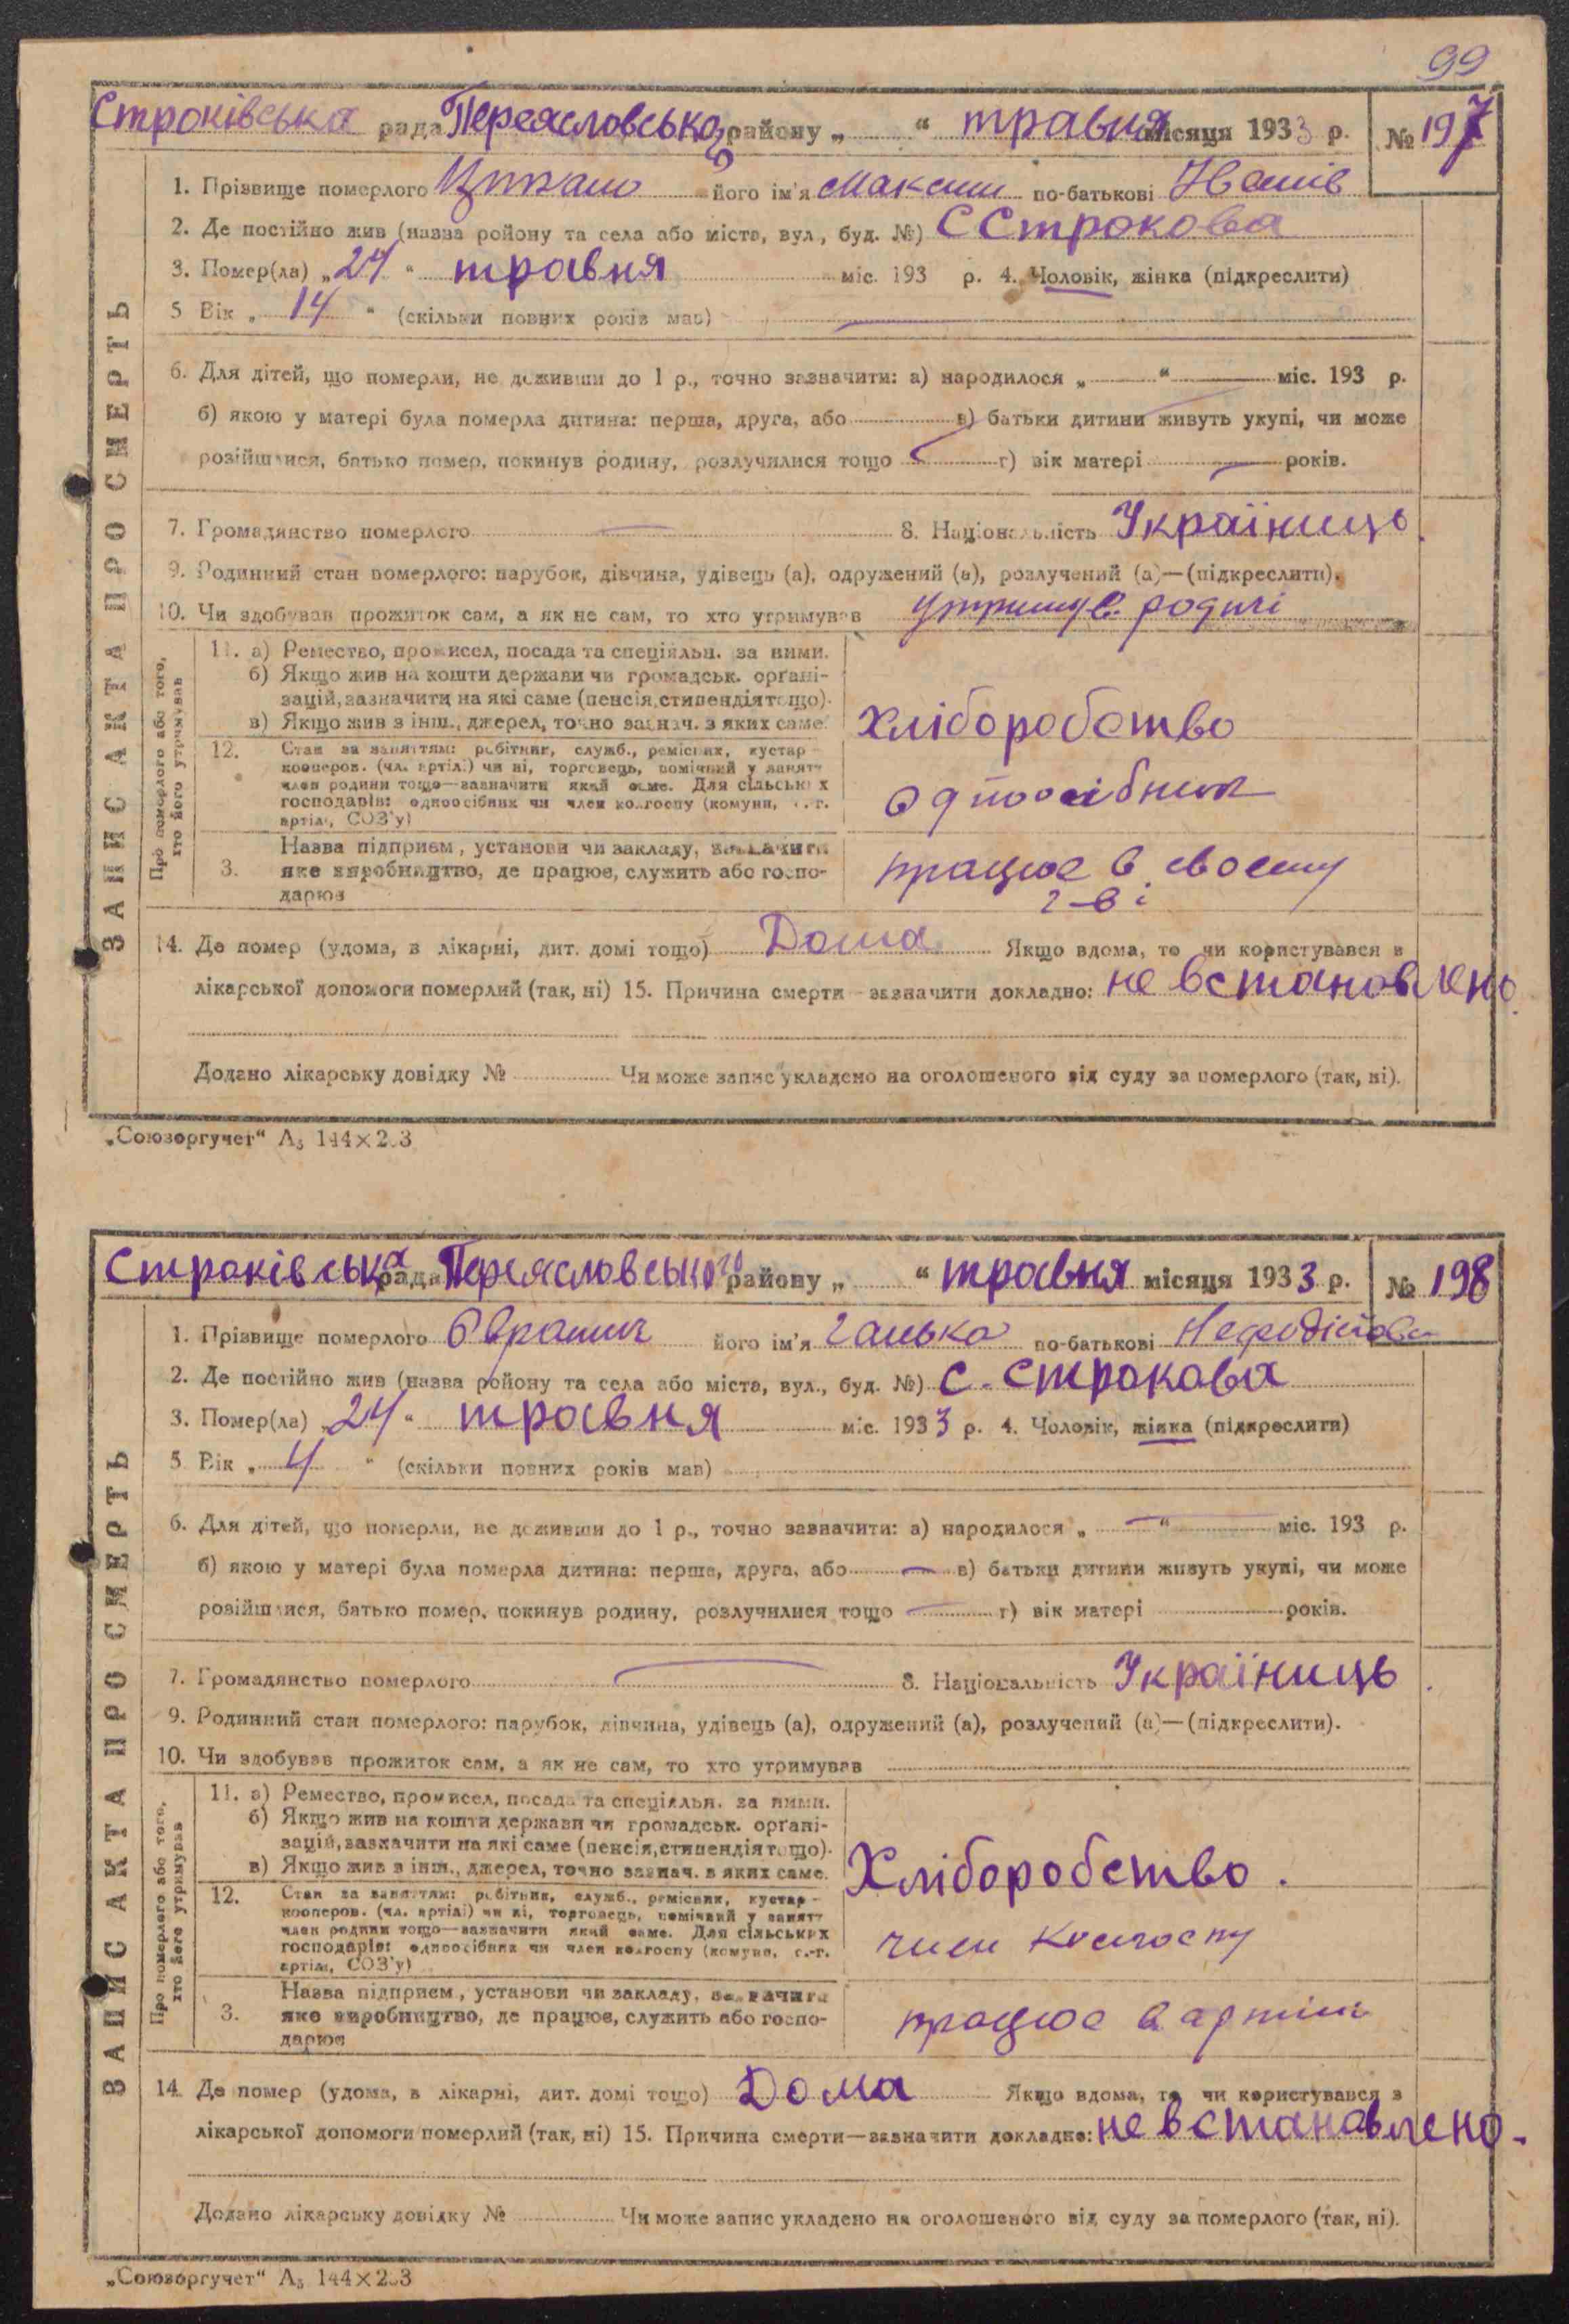 99
Строківська рада Переясловського району „ “ травня місяця 1933 р. № 197
1. Прізвище померлого його ім'я Максим по-батькові
2. Де постійно жив (назва ройону та села або міста, вул., буд. №) С Строкова
3. Помер(ла) „24“ травня міс. 193 р. 4. Чоловік, жінка (підкреслити)
5 Вік „ 14 “ (скільки повних років мав)
6. Для дітей, що померли, не доживши до 1 р., точно зазначити: а) народилося „ “ міс. 193 р.
б) якою у матері була померла дитина: перша, друга, або в) батьки дитини живуть укупі, чи може
розійшлися, батько помер, покинув родину, розлучилися тощо г) вік матері років.
7. Громадянство померлого 8. Національність Україниць.
9. Родинний стан померлого: парубок, дівчина, удівець (а), одружений (а), розлучений (а)—(підкреслити).
10. Чи здобував прожиток сам, а як не сам, то хто утримував родичі
ЗАПИС АКТА ПРО СМЕРТЬ
Про померлого або того, хто його утримував
11. а) Ремество, промисел, посада та спеціяльн. за ними.
б) Якщо жив на кошти держави чи громадськ. орґані-
зацій, зазначити на які саме (пенсія, стипендія тощо).
в) Якщо жив з інш., джерел, точно зазнач. з яких саме.
Хліборобство
12. Стан за заняттям: робітник, служб., ремісник, кустар-
кооперов. (чл. артілі) чи ні, торговець, помічний у занятт
член родини тощо—зазначити який саме. Для сільських
господарів: одноосібник чи член колгоспу (комуни, с.-г.
артілі, СОЗ'у)
одноосібник
Назва підприєм, установи чи закладу, зазначити
3. яке виробництво, де працює, служить або госпо-
дарює
працює в своєму
г-ві
14. Де помер (удома, в лікарні, дит. домі тощо) Дома Якщо вдома, то чи користувався з
лікарської допомоги померлий (так, ні) 15. Причина смерти—зазначити докладно: не встановлено.
Додано лікарську довідку № Чи може запис укладено на оголошеного від суду за померлого (так, ні).
„Союзоргучет“ А₅ 144×203
Строківська рада Переясловського району „ “ травня місяця 1933 р. № 198
1. Прізвище померлого його ім'я Ганька по-батькові
2. Де постійно жив (назва ройону та села або міста, вул., буд. №) с. Строкова
3. Помер(ла) „24“ травня міс. 1933 р. 4. Чоловік, жінка (підкреслити)
5 Вік „ 4 “ (скільки повних років мав)
6. Для дітей, що померли, не доживши до 1 р., точно зазначити: а) народилося „ “ міс. 193 р.
б) якою у матері була померла дитина: перша, друга, або в) батьки дитини живуть укупі, чи може
розійшлися, батько помер, покинув родину, розлучилися тощо г) вік матері років.
7. Громадянство померлого 8. Національність Україниць.
9. Родинний стан померлого: парубок, дівчина, удівець (а), одружений (а), розлучений (а)—(підкреслити).
10. Чи здобував прожиток сам, а як не сам, то хто утримував
ЗАПИС АКТА ПРО СМЕРТЬ
Про померлого або того, хто його утримував
11. а) Ремество, промисел, посада та спеціяльн. за ними.
б) Якщо жив на кошти держави чи громадськ. орґані-
зацій, зазначити на які саме (пенсія, стипендія тощо).
в) Якщо жив з інш., джерел, точно зазнач. з яких саме.
Хліборобство.
12. Стан за заняттям: робітник, служб., ремісник, кустар-
кооперов. (чл. артілі) чи ні, торговець, помічний у занятт
член родини тощо—зазначити який саме. Для сільських
господарів: одноосібник чи член колгоспу (комуни, с.-г.
артілі, СОЗ'у)
член колгоспу
Назва підприєм, установи чи закладу, зазначити
3. яке виробництво, де працює, служить або госпо-
дарює
працює в артілі
14. Де помер (удома, в лікарні, дит. домі тощо) Дома Якщо вдома, то чи користувався з
лікарської допомоги померлий (так, ні) 15. Причина смерти—зазначити докладно: не встановлено.
Додано лікарську довідку № Чи може запис укладено на оголошеного від суду за померлого (так, ні).
„Союзоргучет“ А₅ 144×203